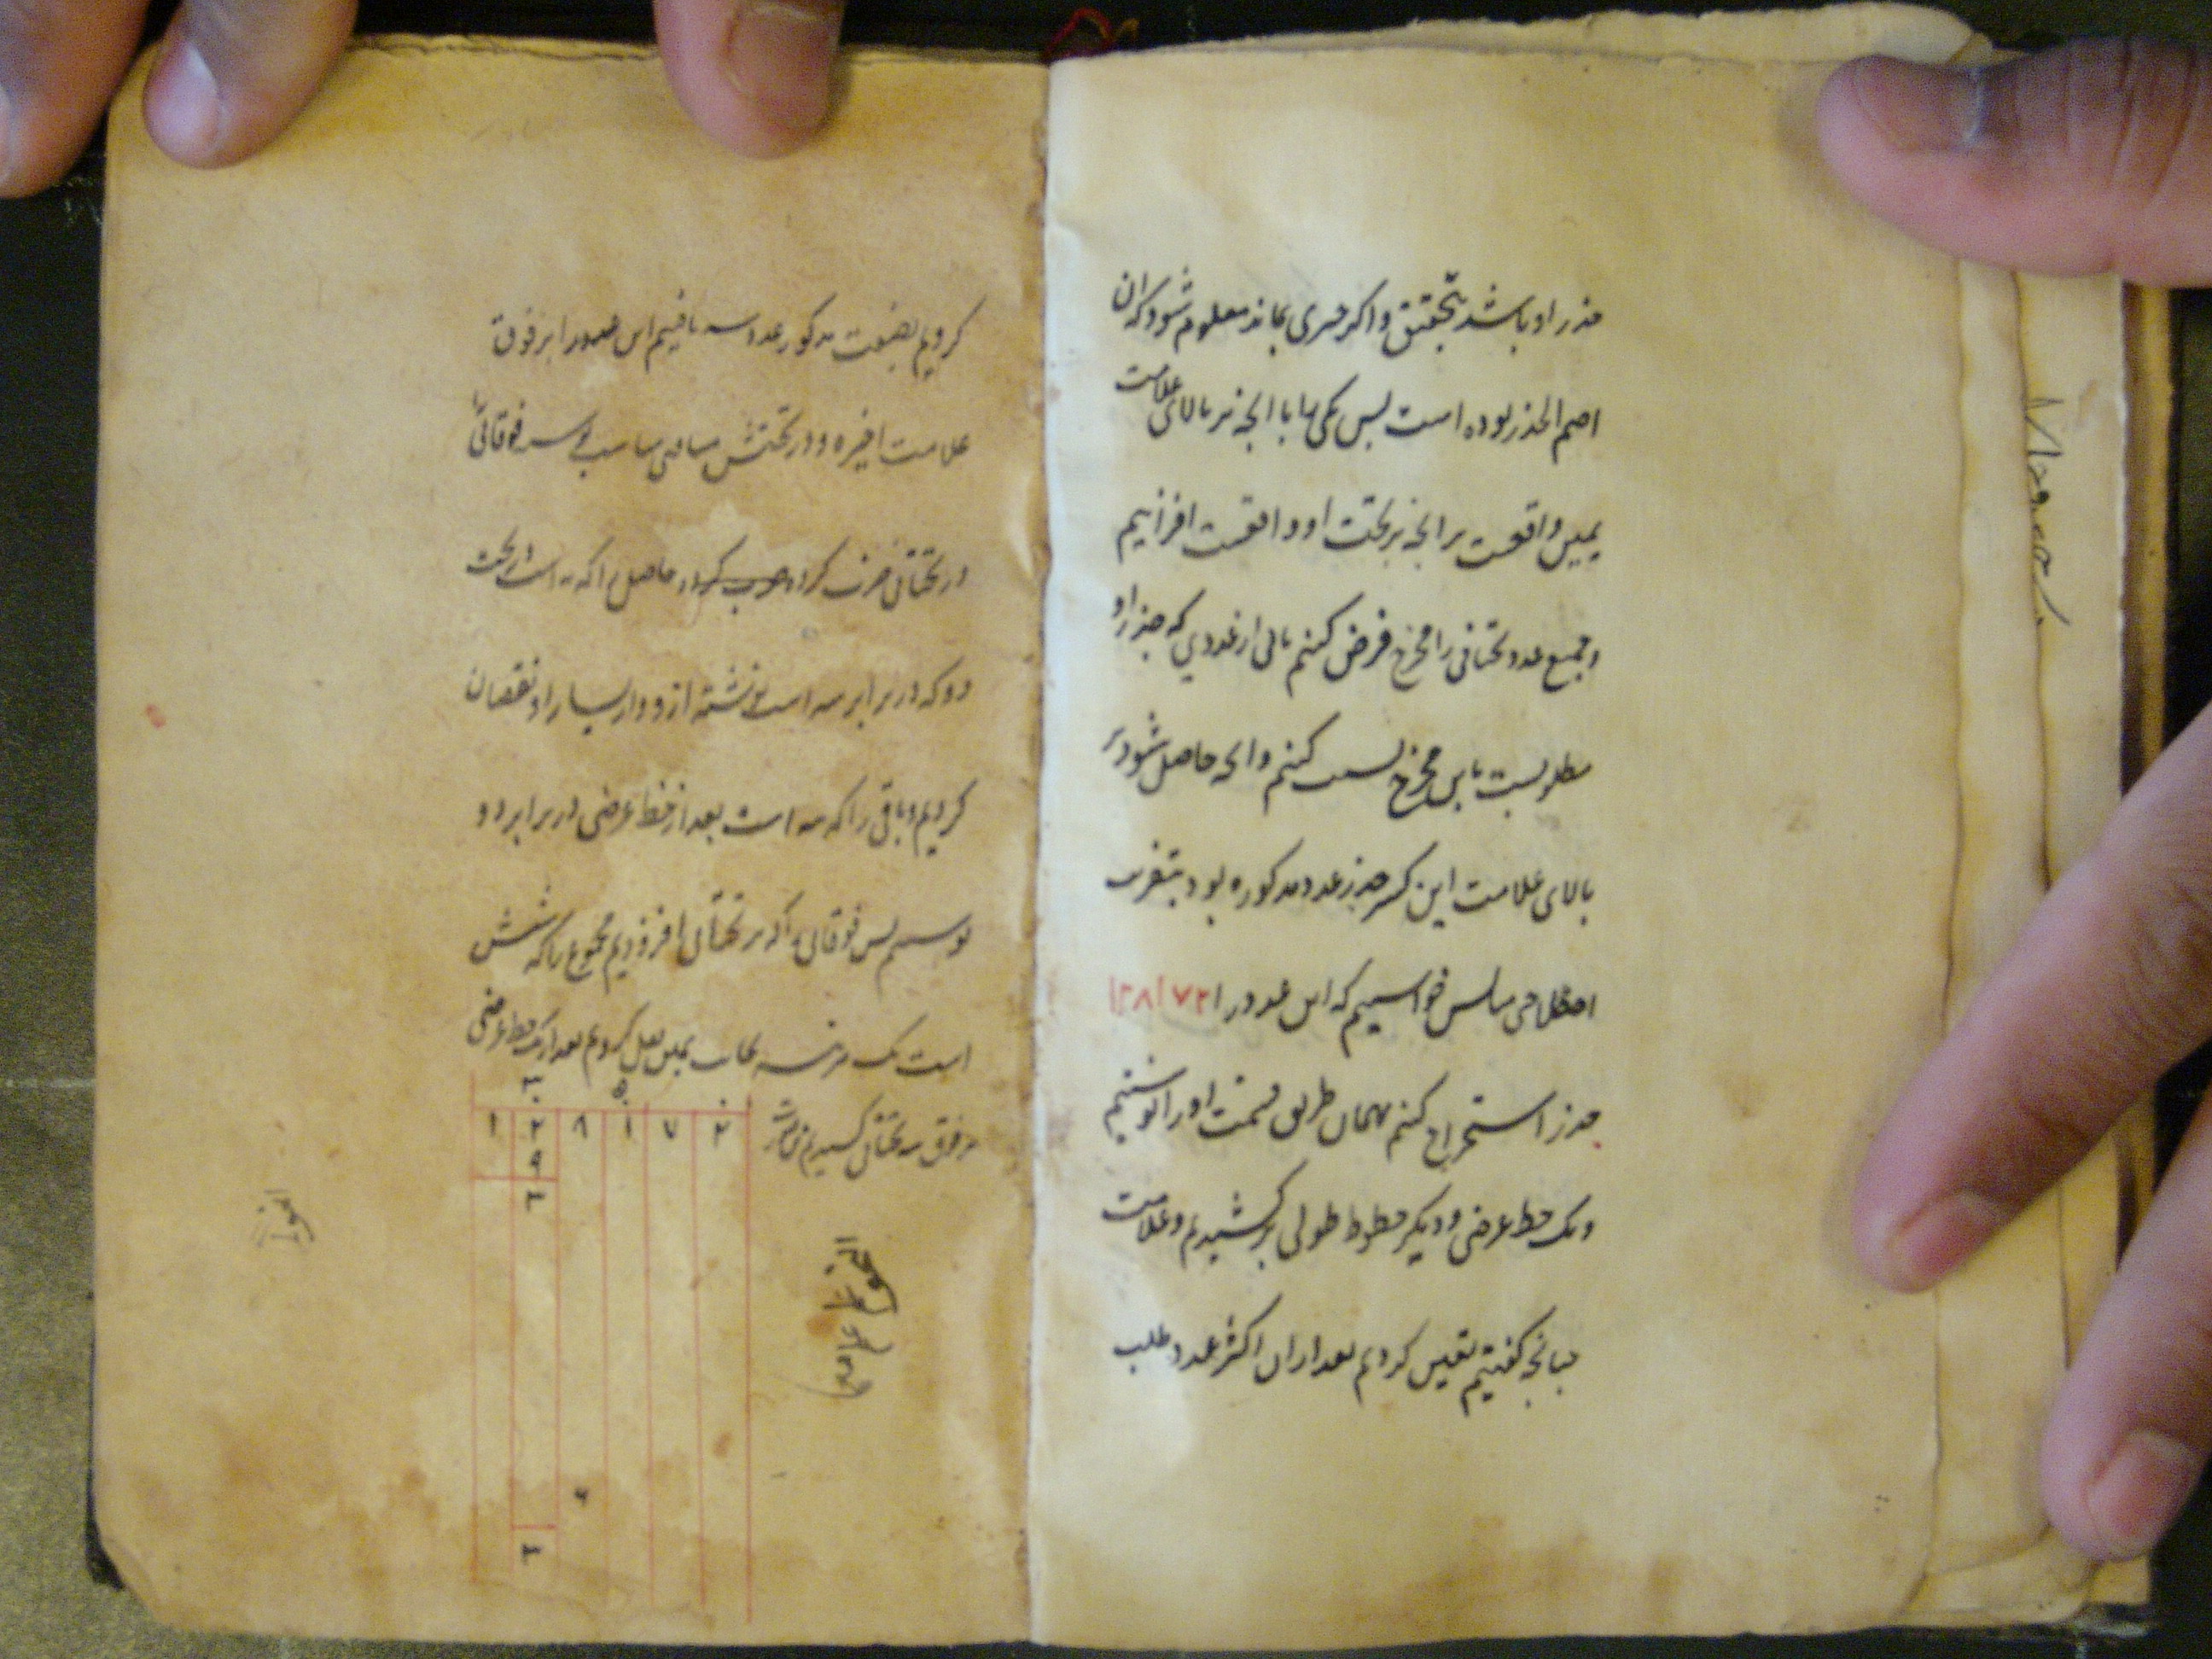 جذر او باشد بتحقیق و اکر چیزی بماند معلوم شود که ان
اصم الجذر بوده است پس یکی با انچه بر بالای علامت
یمین واقعست بر انچه بر تحت او واقعست افزاییم
و جمیع عدد تحتانی را مخرج فرض کنیم باقی از عددی که جذر او
مطلوبست باین مخرج نسبت کنیم و انچه حاصل شود با
بالای علامت این کسر جذر عدد مذکوره بود بتقریب
اصطلاحی مثالش خواستیم که این عدد را ۱۲۸۱۷۲
جذر استخراج کنیم بهمان طریق قسمت او را نوشتیم
و یک خط عرضی و دیکر خطوط طولی برکشیدیم و علامت
چنانچه کفتیم تعیین کردیم بعد از ان اکثر عدد طلب
کردیم بصفت مذکور عدد سه یافتیم این عدد را بر فوق
علامت اخیره و در تحتش نوشتیم سه فوقانی را
در تحتانی ضرب کرده حاصل را که نه است از تحت
دو که در برابر سه است نوشته از دو و از یسار او نقصان
کردیم و باقی را که سه است بعد از خط عرضی در برابر دو
نوشتیم پس فوقانی را که بر تحتانی افزودیم مجموع را که شش
است یک مرتبه بجانب یمین نقل کردیم بعد از یک خط عرضی
بر فوق سه تحتانی کشیدیم
۳ ۵
۱ ۲ ۸ ۱ ۷ ۲
۹
۳
۶
۳